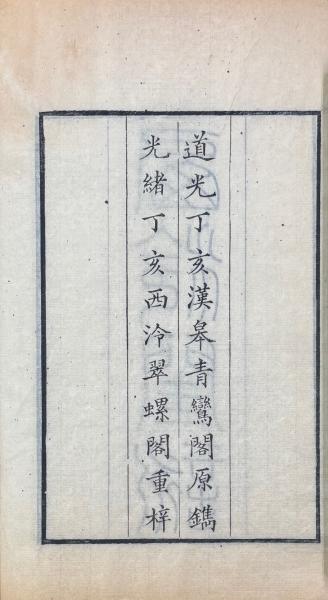 道光丁亥漢皋青鸞閣原鐫
光緒丁亥西泠翠螺閣重梓